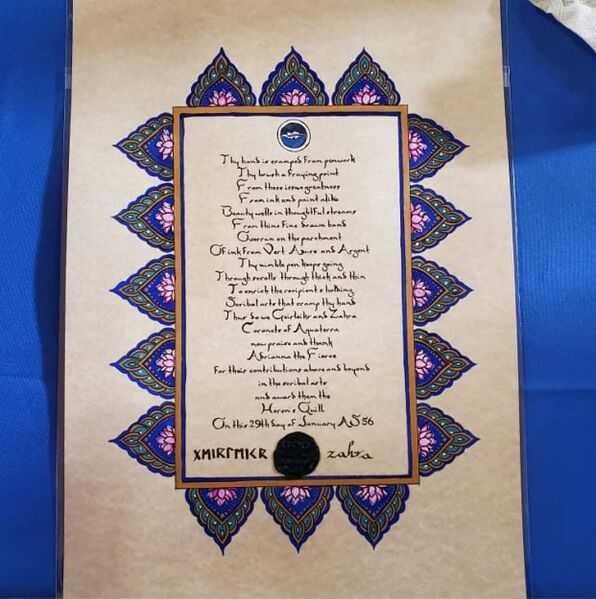 Thy hand is cramped from penwork
Thy brush a fraying point
From these issue greatness
From ink and paint alike
Beauty wells in thoughtful streams
From thine fine drawn hand
Overrun on the parchment
Of ink from Vert Azure and Argent
Thy nimble pen keeps going
Through scrolls through thick and thin
To enrich the recipient's holding
Scribal arts that cramp thy hand
Thus do we Geirleikr and Zahra
Coronets of Aquaterra
now praise and thank
Adrianna the Fierce
for their contributions above and beyond
in the scribal arts
and award them the
Heron's Quill
On this 29th day of January AS 56
ᚷᛖᛁᚱᛚᛖᛁᚲᚱ zahra